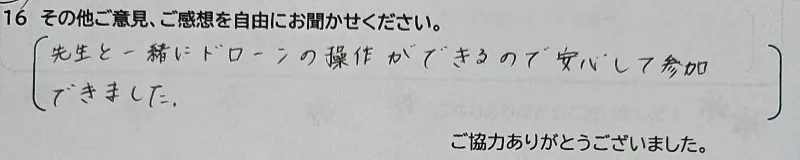 16 その他ご意見、ご感想を自由にお聞かせください。
先生と一緒にドローンの操作ができるので安心して参加
できました.
ご協力ありがとうございました。